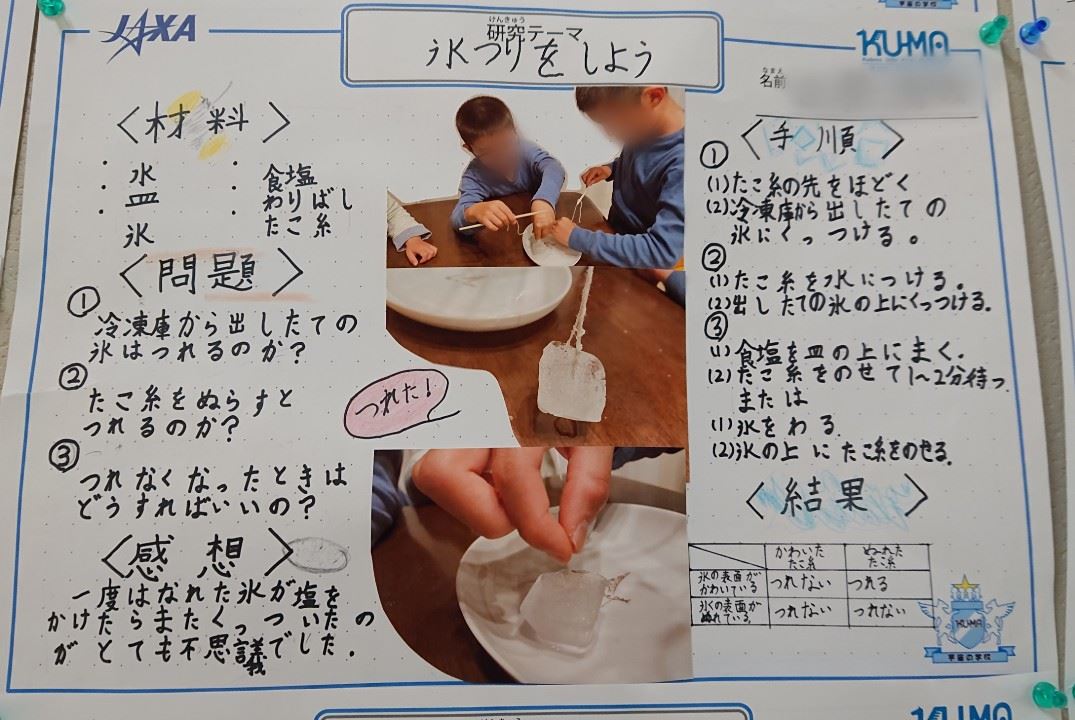 宇宙の学校
JAXA
けんきゅう
研究テーマ
氷つりをしよう
KUMA
なまえ
名前
〈材料〉
・水 ・食塩
・皿 ・わりばし
・氷 ・たこ糸
〈問題〉
①
冷凍庫から出したての
氷はつれるのか?
②
たこ糸をぬらすと
つれるのか?
③
つれなくなったときは
どうすればいいの?
〈感想〉
一度はなれた氷が塩を
かけたらまたくっついたの
がとても不思議でした.
つれた!
〈手順〉
①
(1)たこ糸の先をほどく
(2)冷凍庫から出したての
氷にくっつける。
②
(1)たこ糸を水につける。
(2)出したての氷の上にくっつける。
③
(1)食塩を皿の上にまく.
(2)たこ糸をのせて1~2分待つ
または
(1)氷をわる
(2)氷の上にたこ糸をのせる.
〈結果〉
かわいたたこ糸 ぬれたたこ糸
氷の表面がかわいている つれない つれる
氷の表面がぬれている. つれない つれない
KUMA
宇宙の学校
KUMA